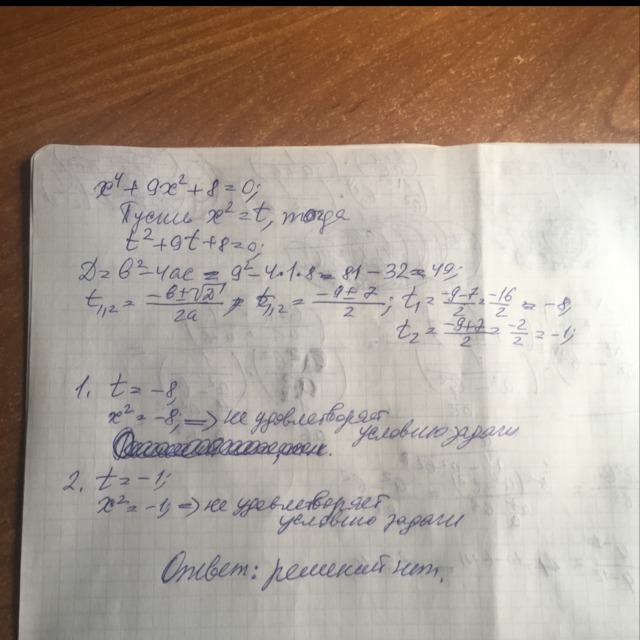 x⁴ + 9x² + 8 = 0;
Пусть x² = t, тогда
t² + 9t + 8 = 0;
Д = b² - 4ac = 9² - 4·1·8 = 81 - 32 = 49;
t₁,₂ = (-b ± √Д)/2a = t₁,₂ = (-9 ± 7)/2; t₁ = (-9-7)/2 = -16/2 = -8,
t₂ = (-9+7)/2 = -2/2 = -1;
1. t = -8,
x² = -8, => не удовлетворяет
условию задачи
2. t = -1;
x² = -1, => не удовлетворяет
условию задачи
Ответ: решений нет.